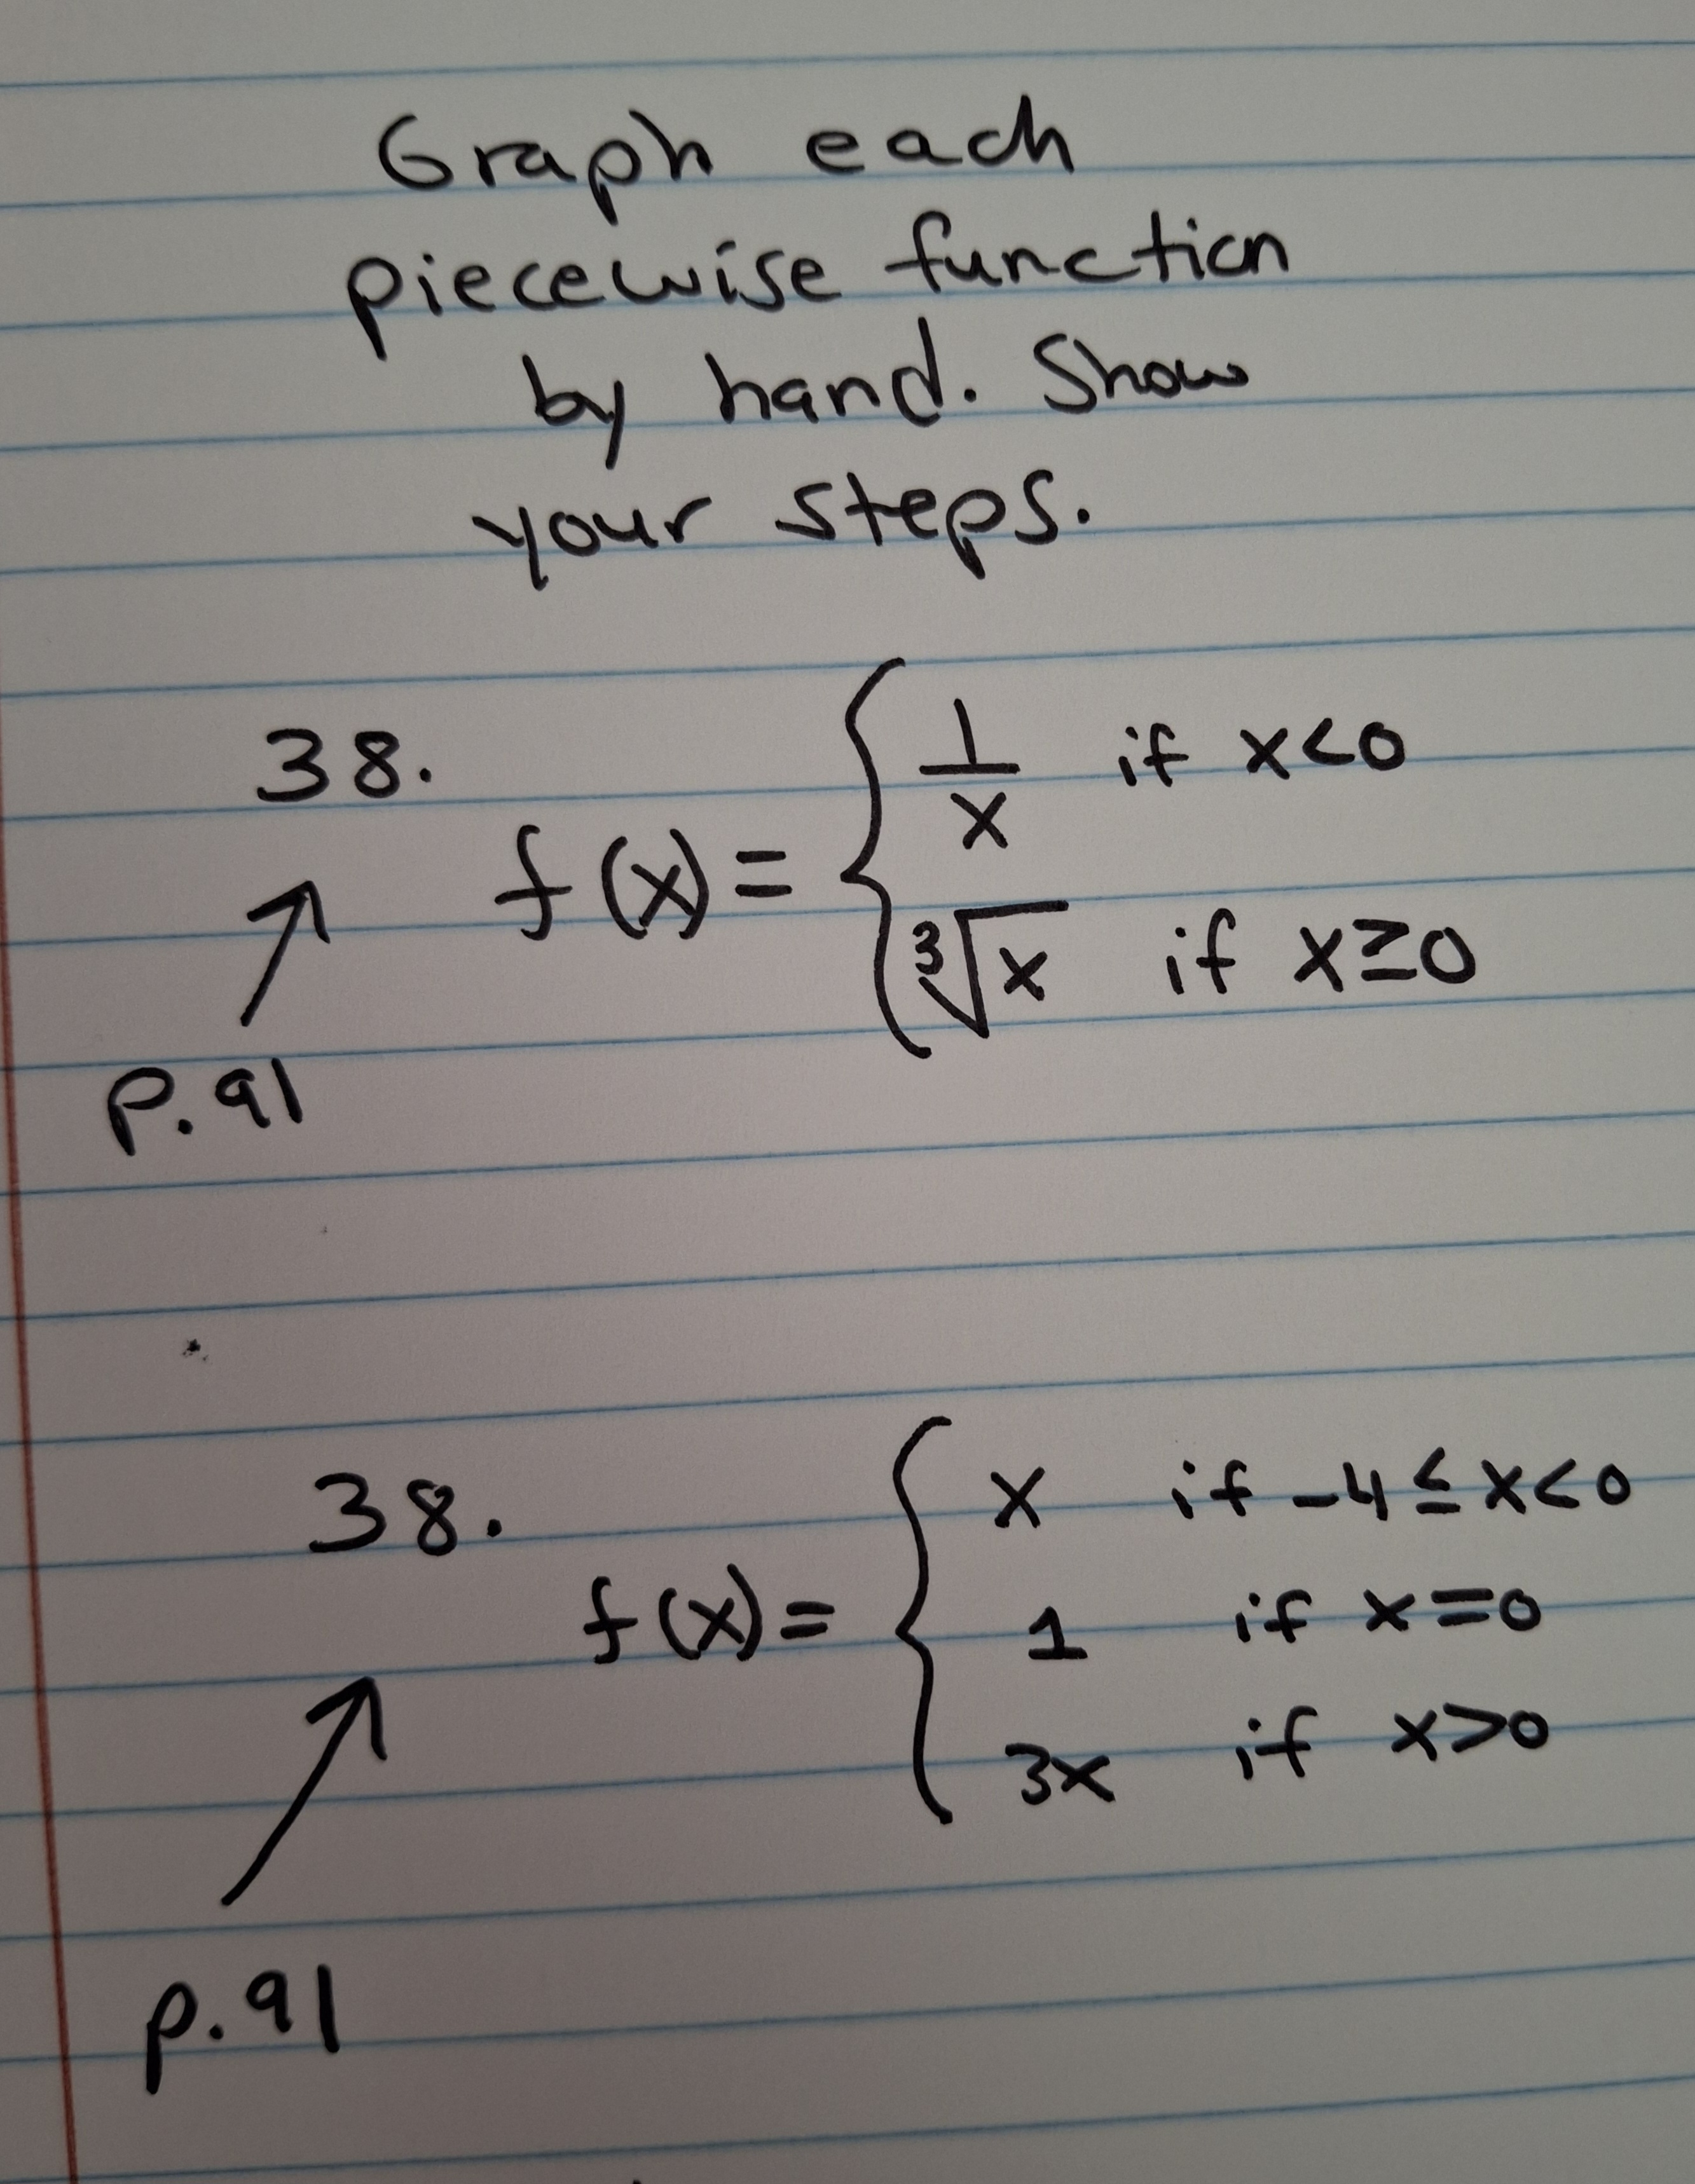 Graph each
piecewise function
by hand. Show
your steps.
38.
f(x) = { 1/x if x<0
∛x if x≥0
p.91
38.
f(x) = { x if -4≤x<0
1 if x=0
3x if x>0
p.91